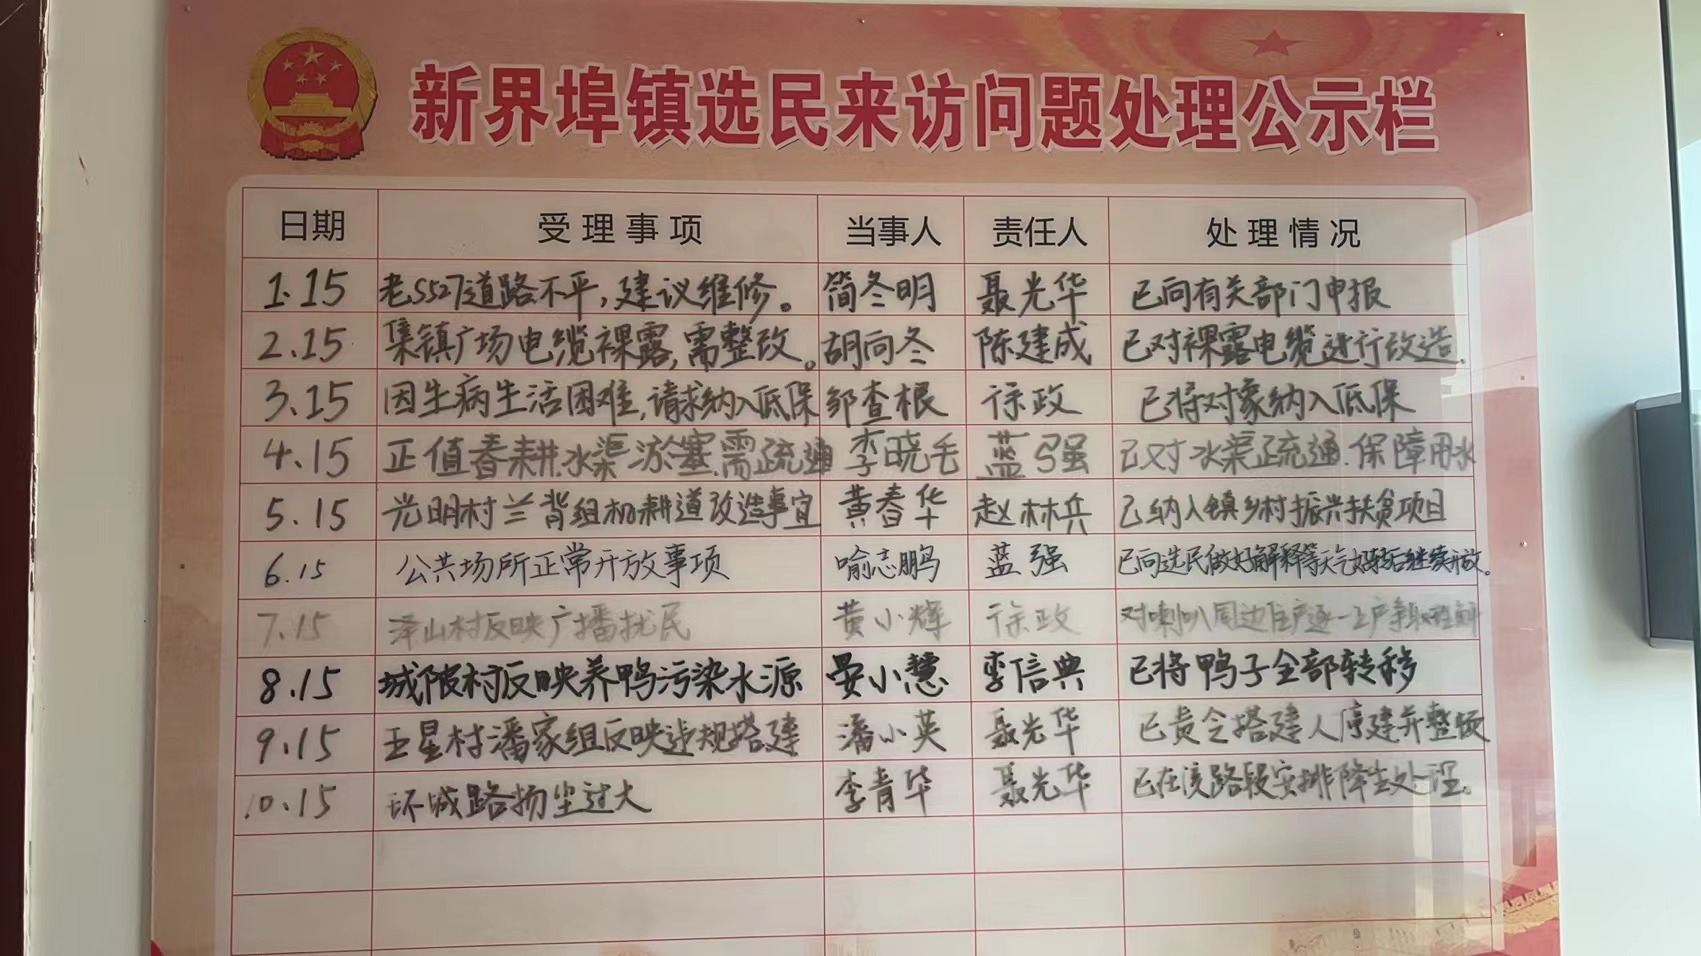 新界埠镇选民来访问题处理公示栏
日期 受理事项 当事人 责任人 处理情况
1.15 老S527道路不平，建议维修。 简冬明 聂光华 已向有关部门申报
2.15 集镇广场电缆裸露，需整改。 胡向冬 陈建成 已对裸露电缆进行改造.
3.15 因生病生活困难，请求纳入低保 邹查根 徐政 已将对象纳入低保
4.15 正值春耕.水渠淤塞.需疏通 李晓毛 蓝强 已对水渠疏通.保障用水
5.15 光明村兰背组机耕道改造事宜 黄春华 赵林兵 已纳入镇乡村振兴扶贫项目
6.15 公共场所正常开放事项 喻志鹏 蓝强 已向选民做好解释等天气好转后继续开放。
7.15 泽山村反映广播扰民 黄小辉 徐政 对喇叭周边住户逐一上户争取理解
8.15 城陂村反映养鸭污染水源 晏小慧 李信典 已将鸭子全部转移
9.15 五星村潘家组反映违规搭建 潘小英 聂光华 已责令搭建人停建并整顿
10.15 环城路扬尘过大 李青华 聂光华 已在该路段安排降尘处理.